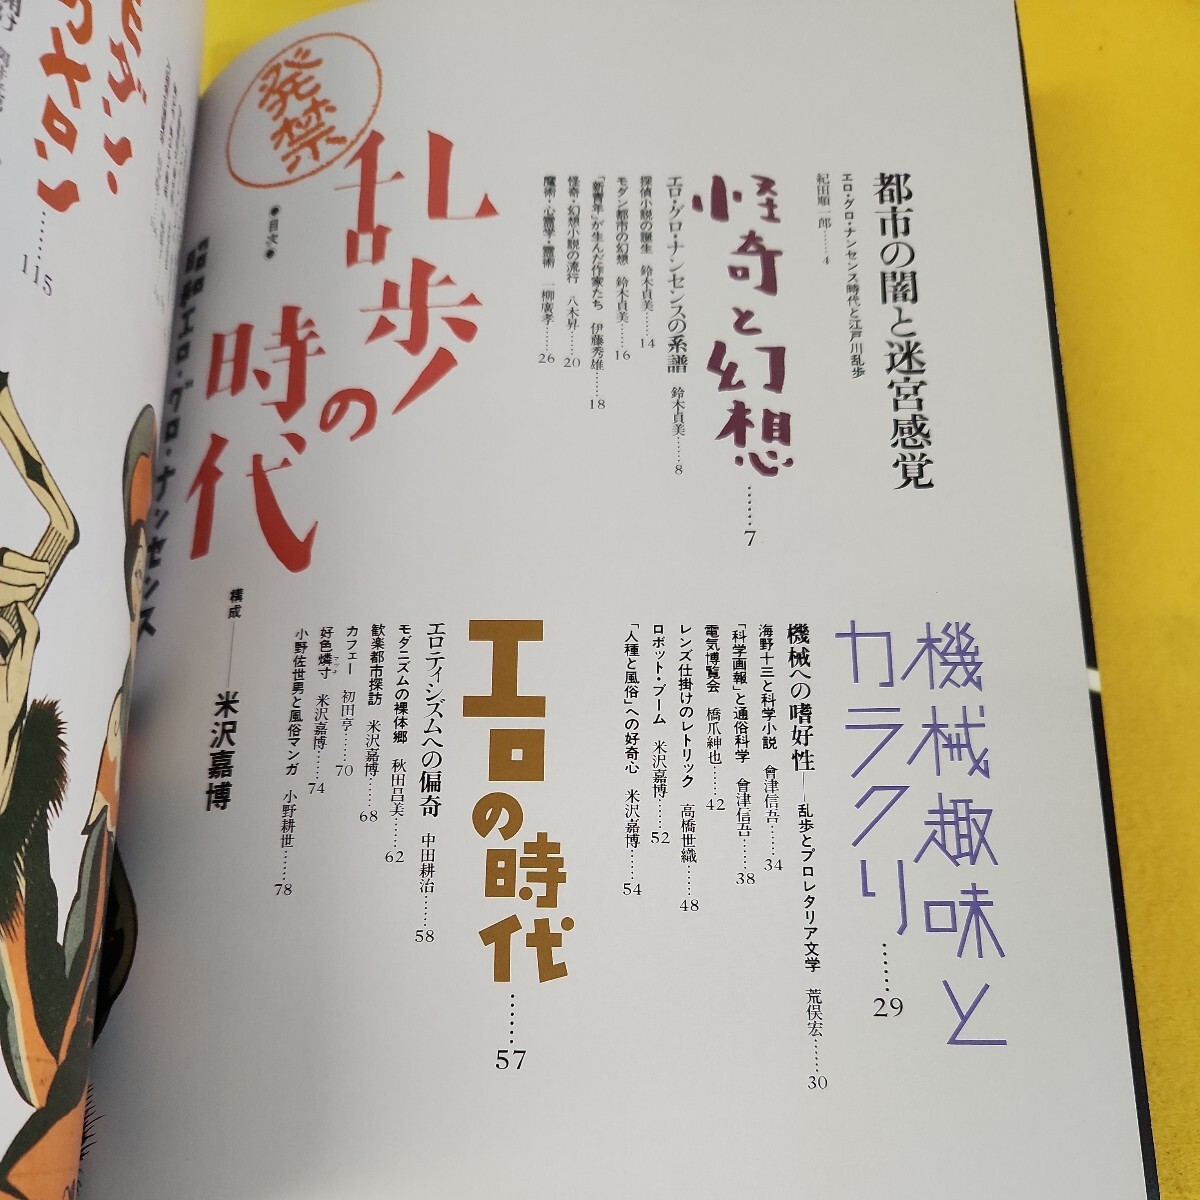 都市の闇と迷宮感覚
エロ・グロ・ナンセンス時代と江戸川乱歩
紀田順一郎……4
怪奇と幻想……7
エロ・グロ・ナンセンスの系譜 鈴木貞美……8
探偵小説の誕生 鈴木貞美……14
モダン都市の幻想 鈴木貞美……16
「新青年」が生んだ作家たち 伊藤秀雄……18
怪奇・幻想小説の流行 八木昇……20
魔術・心霊学・霊術 一柳廣孝……26
発禁
乱歩の時代
●目次●
昭和エロ・グロ・ナンセンス
構成――米沢嘉博
機械趣味とカラクリ……29
機械への嗜好性――乱歩とプロレタリア文学 荒俣宏……30
海野十三と科学小説 會津信吾……34
「科学画報」と通俗科学 會津信吾……38
電気博覧会 橋爪紳也……42
レンズ仕掛けのレトリック 高橋世織……48
ロボット・ブーム 米沢嘉博……52
「人種と風俗」への好奇心 米沢嘉博……54
エロの時代……57
エロティシズムへの偏奇 中田耕治……58
モダニズムの裸体郷 秋田昌美……62
歓楽都市探訪 米沢嘉博……68
カフェー 初田亨……70
好色燐寸 米沢嘉博……74
小野佐世男と風俗マンガ 小野耕世……78
115